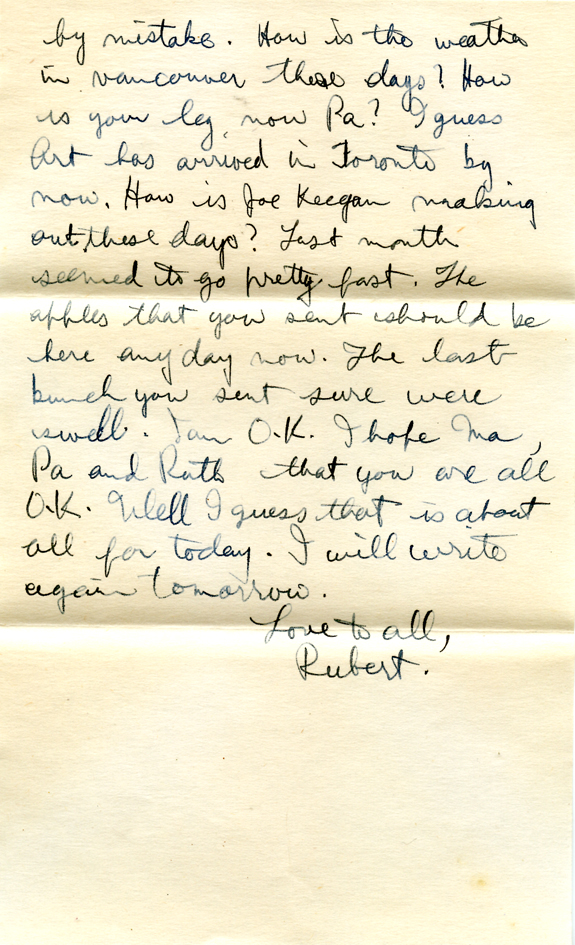 by mistake. How is the weather
in vancouver these days? How
is your leg now Pa? I guess
Art has arrived in Toronto by
now. How is Joe Keegan making
out these days? Last month
seemed to go pretty fast. The
apples that you sent should be
here any day now. The last
bunch you sent sure were
swell. I am O.K. I hope Ma,
Pa and Ruth that you are all
O.K. Well I guess that is about
all for today. I will write
again tomorrow.
Love to all,
Rubert.